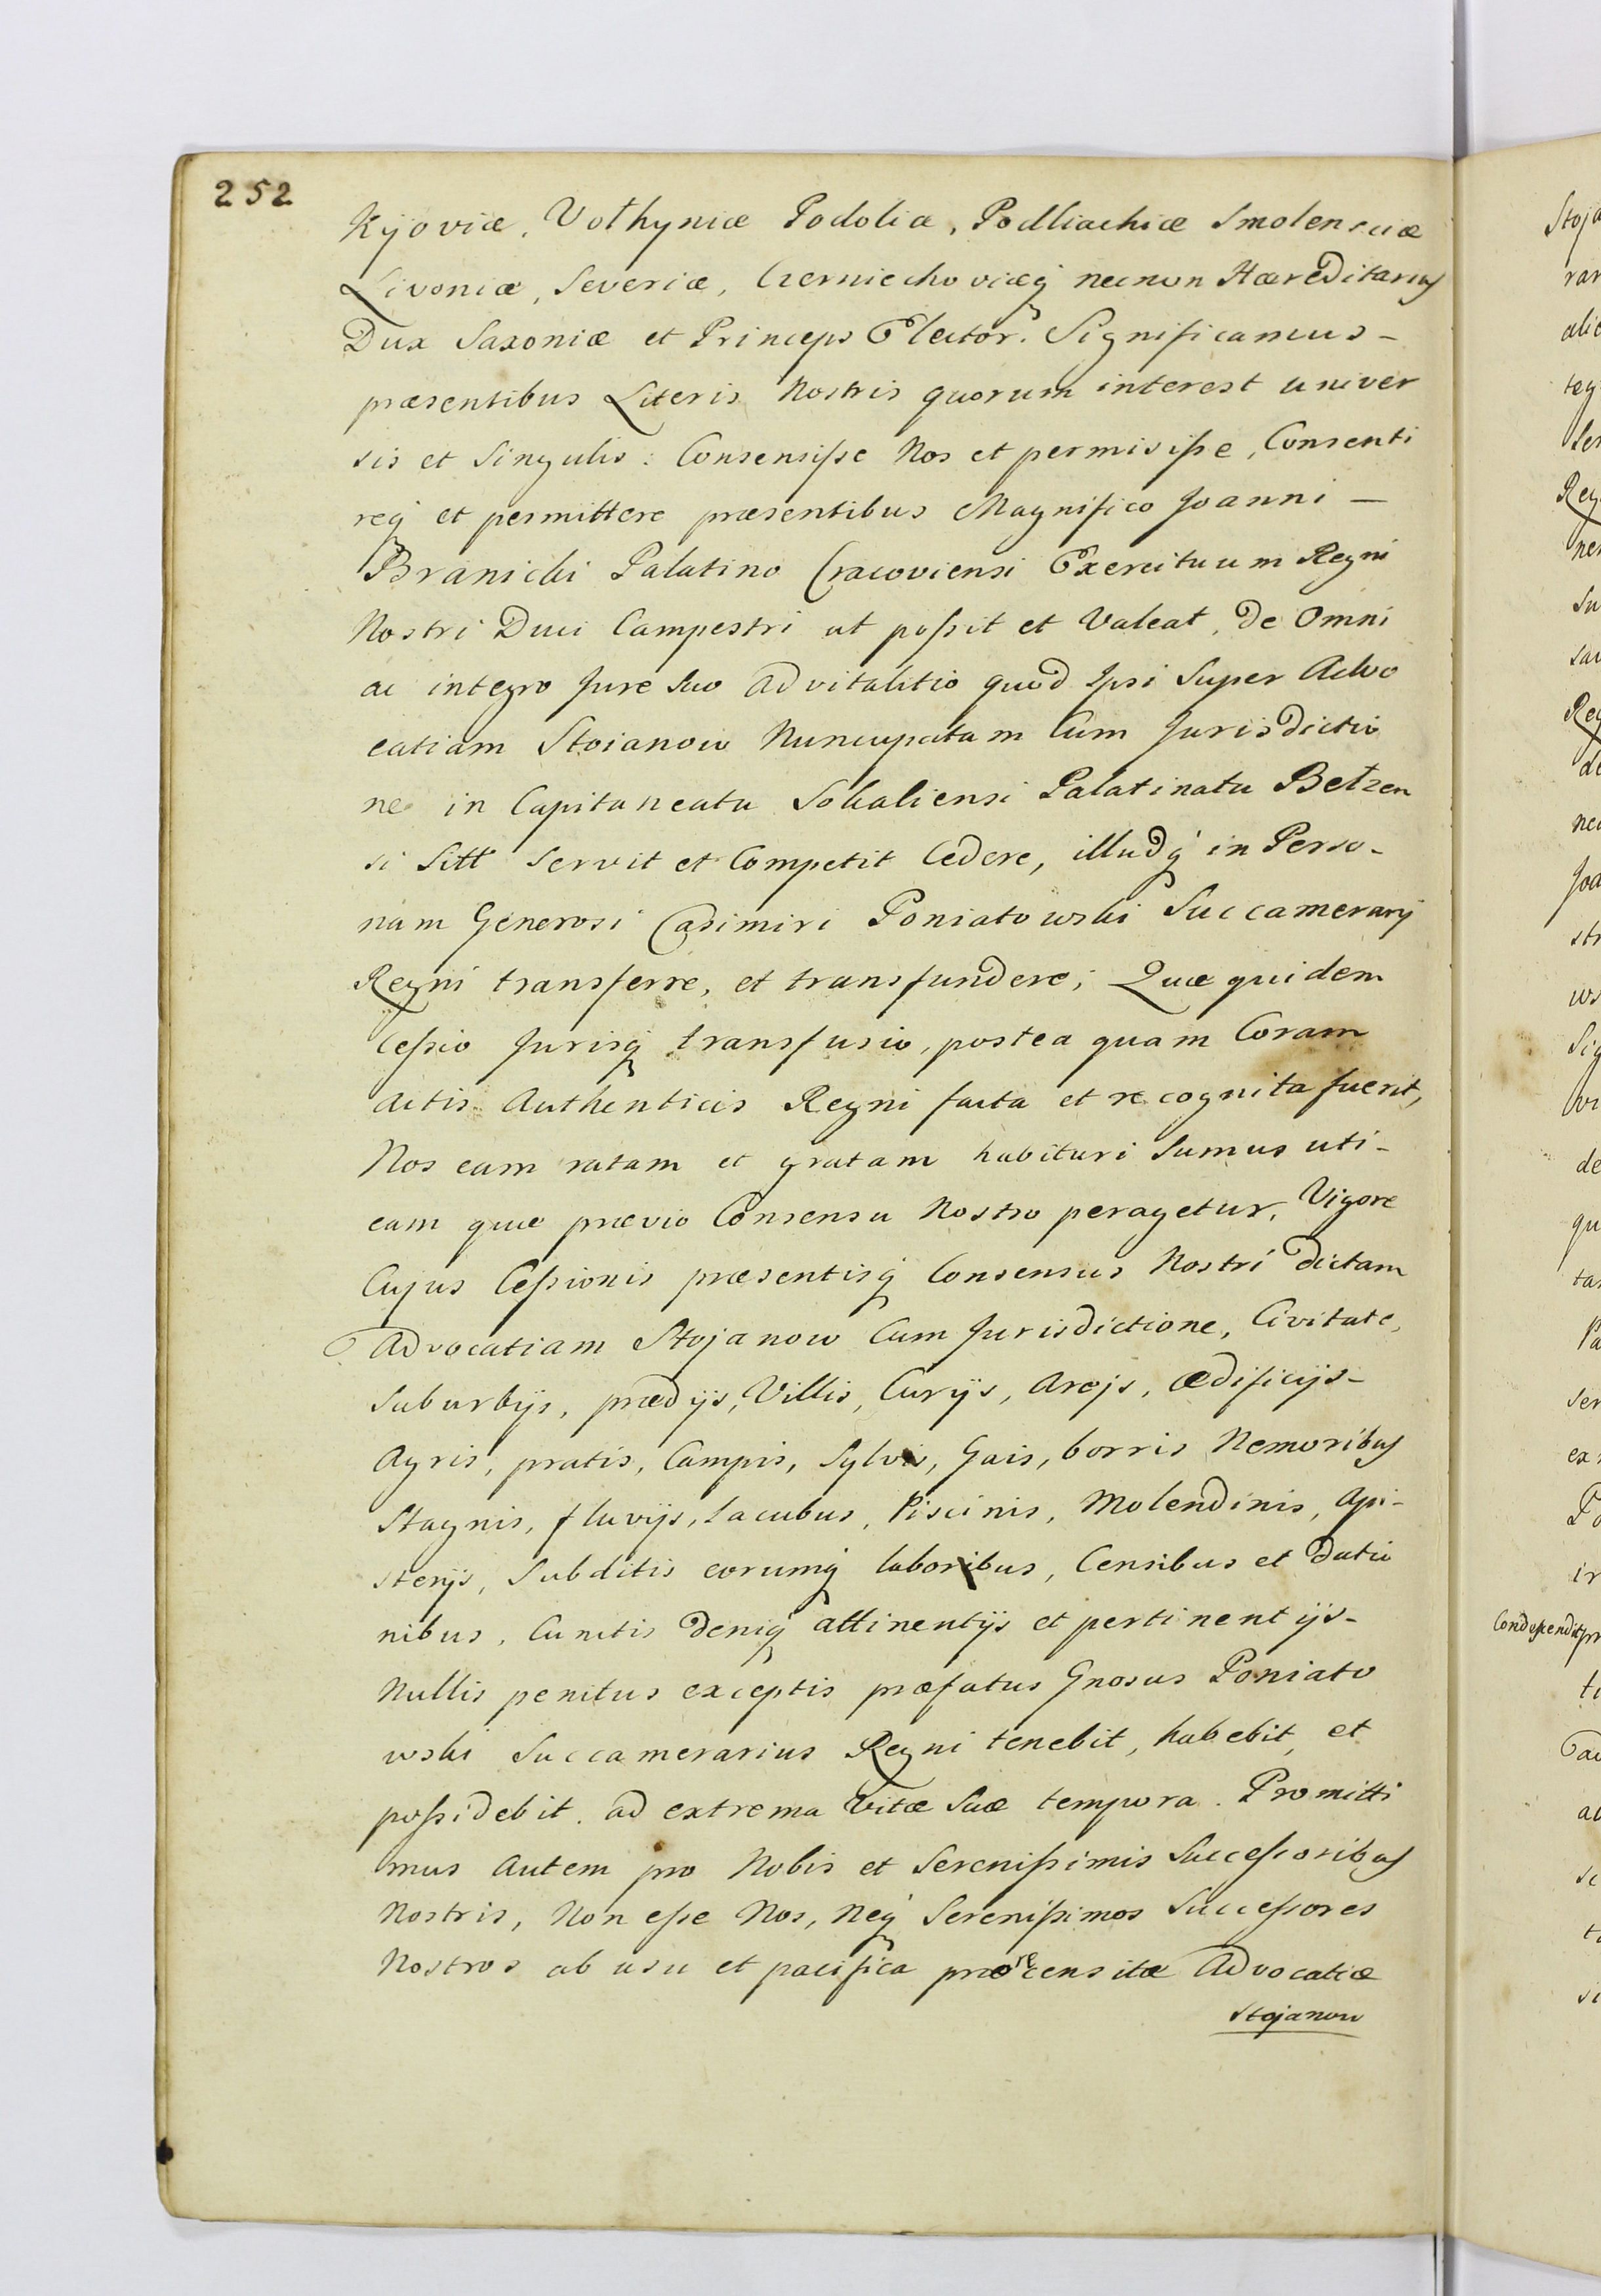 252
Kÿoviæ, Volhyniæ Podoliæ, Podlachiæ Smolensciæ
Livoniæ, Severiæ, Czerniechoviæq́ necnon Hæreditarius
Dux Saxoniæ et Princeps Elector. Significamus -
præsentibus Literis Nostris quorum interest univer
sis et Singulis: Consensiſse Nos et permisiſse, Consenti
req́ et permittere præsentibus Magnifico Joanni —
Branicki Palatino Cracoviensi Exercituum Regni
Nostri Duci Campestri ut poſsit et Valeat, de Omni
ac integro Jure Suo Advitalitio quod Ipsi Super Advo
catiam Stoianow Nuncupatam Cum Jurisdictio
ne in Capitaneatu Sokaliensi Palatinatu Betzen
si Sitt Servit et Competit Cedere, illudq́ in Perso-
nam Generosi Casimiri Poniatowski Succamerarij
Regni transferre, et transfundere; Quæ quidem
Ceſsio Jurisq́ transfusio, postea quam Coram
Actis Authenticis Regni facta et recognita fuerit,
Nos eam ratam et gratam habituri Sumus uti-
eam quæ prævio Consensu Nostro peragetur, Vigore
Cujus Ceſsionis præsentisq́ Consensus Nostri dictam
Advocatiam Stojanow Cum Jurisdictione, Civitate,
Suburbijs, prædijs, Villis, Curijs, Areis, Ædificijs-
Agris, pratis, Campis, Sylvis, Gais, borris Nemoribus
Stagnis, fluvijs, Lacubus, Piscinis, Molendinis, Api-
sterijs, Subditis eorumq́ laboribus, Censibus et datio
nibus, Cunctis deniq́ attinentijs et pertinentijs-
Nullis penitus exceptis præfatus Gnosus Poniato
wski Succamerarius Regni tenebit, habebit, et
poſsidebit. ad extrema Vitæ Suæ tempora. Promitti
mus Autem pro Nobis et Sereniſsimis Succeſsoribus
Nostris, Non eſse Nos, Neq́ Sereniſsimos Succeſsores
Nostros ab usu et pacifica prærecensitæ Advocatiæ
Stojanow